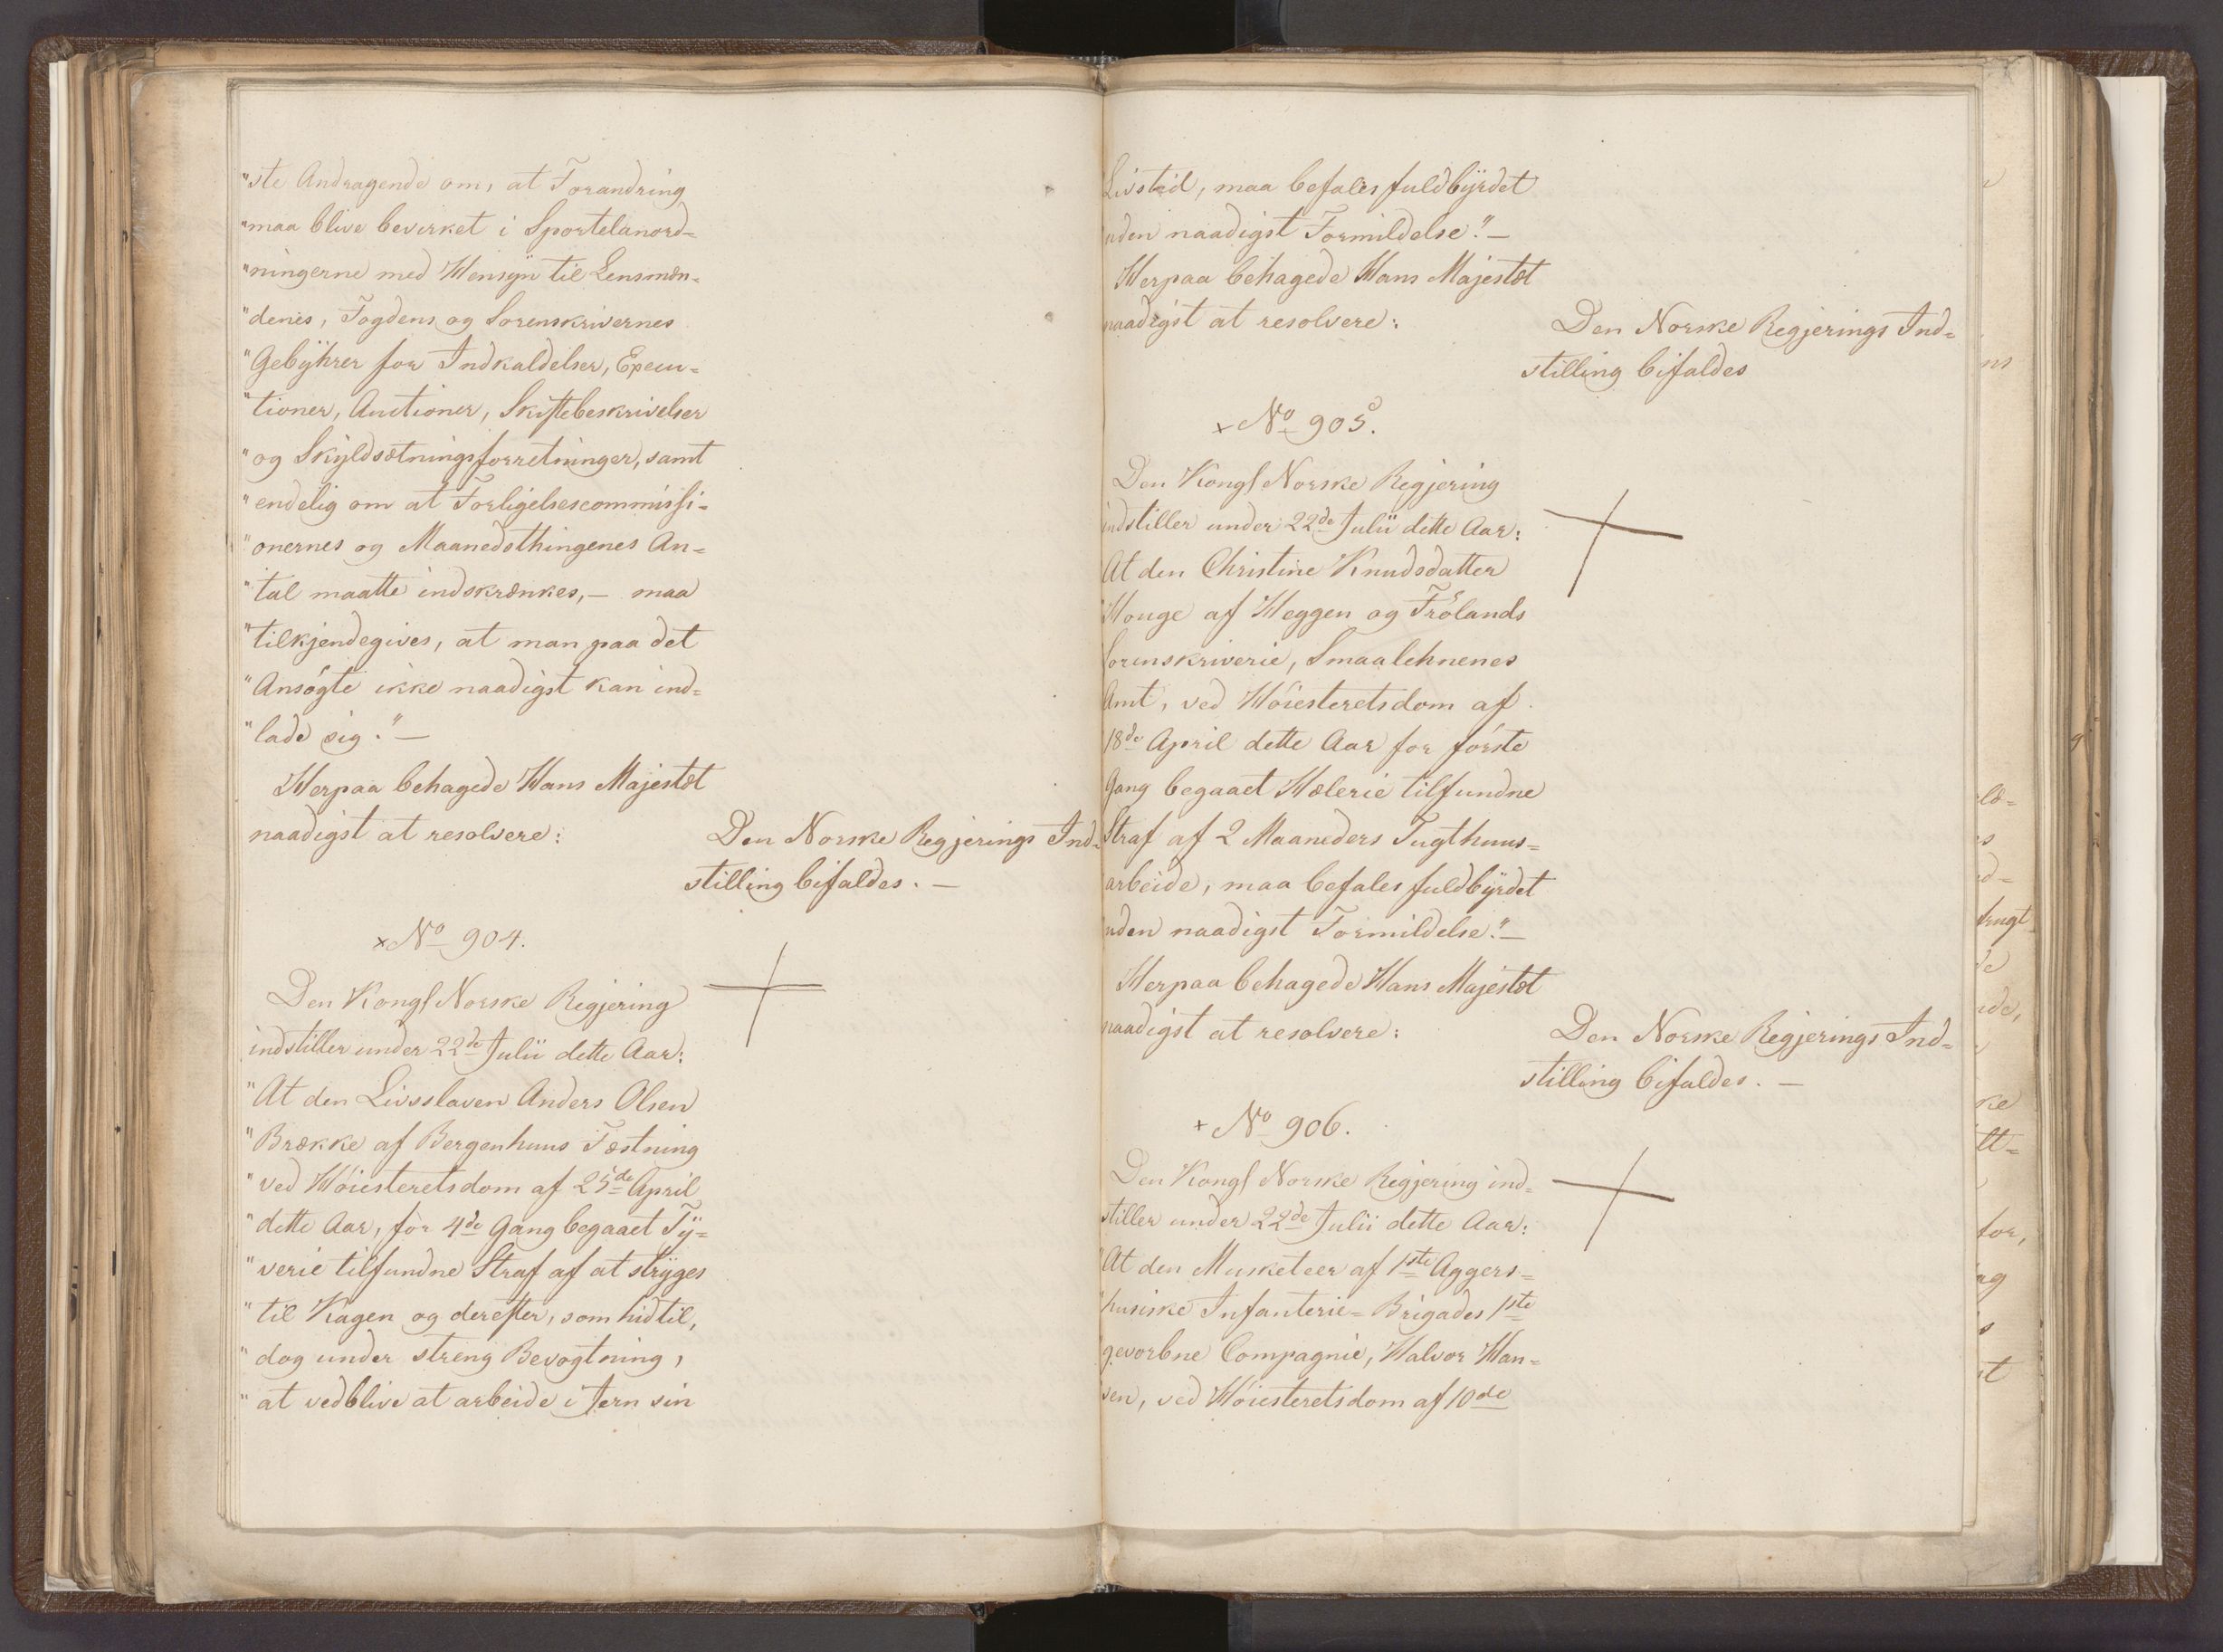 "ste Andragende om, at Forandring
"maa blive bevirket i Sportelanord=
"ningerne med Hensyn til Lensmæn=
"denes, Fogdens og Sorenskrivernes
"Gebyhrer for Indkaldelser, Execu=
"tioner, Auctioner, Skiftebeskrivelser
"og Skyldsætningsforretninger, samt
"endelig om at Forligelsescommissi=
"onernes og Maanedsthingenes An=
"tal maatte indskrænkes, — maa
"tilkjendegives, at man paa det
"Ansögte ikke naadigst kan ind=
"lade sig." —
Herpaa behagede Hans Majestæt
naadigst at resolvere:
Den Norske Regjerings Ind=
stilling bifaldes. —
× No 904.
Den Kongl Norske Regjering
indstiller under 22de Julii dette Aar:
"At den Livsslaven Anders Olsen
"Brække af Bergenhuus Fæstning
"ved Höiesteretsdom af 25de April
"dette Aar, for 4de Gang begaaet Ty=
"verie tilfundne Straf af at stryges
"til Kagen og derefter, som hidtil,
"dog under streng Bevogtning,
"at vedblive at arbeide i Jern sin
Livstid, maa befales fuldbyrdet
uden naadigst Formildelse." —
Herpaa behagede Hans Majestæt
naadigst at resolvere:
Den Norske Regjerings Ind=
stilling bifaldes
× No 905.
Den Kongl Norske Regjering
indstiller under 22de Julii dette Aar:
At den Christine Knudsdatter
Houge af Heggen og Frölands
Sorenskriverie, Smaalehnenes
Amt, ved Höiesteretsdom af
18de April dette Aar for förste
Gang begaaet Hælerie tilfundne
Straf af 2 Maaneders Tugthuus=
arbeide, maa befales fuldbyrdet
uden naadigst Formildelse." —
Herpaa behagede Hans Majestæt
naadigst at resolvere:
Den Norske Regjerings Ind=
stilling bifaldes. —
+ No 906.
Den Kongl Norske Regjering ind=
stiller under 22de Julii dette Aar:
At den Musketeer af 1ste Aggers=
husiske Infanterie=Brigades 1ste
gevorbne Compagnie, Halvor Han=
sen, ved Höiesteretsdom af 10de